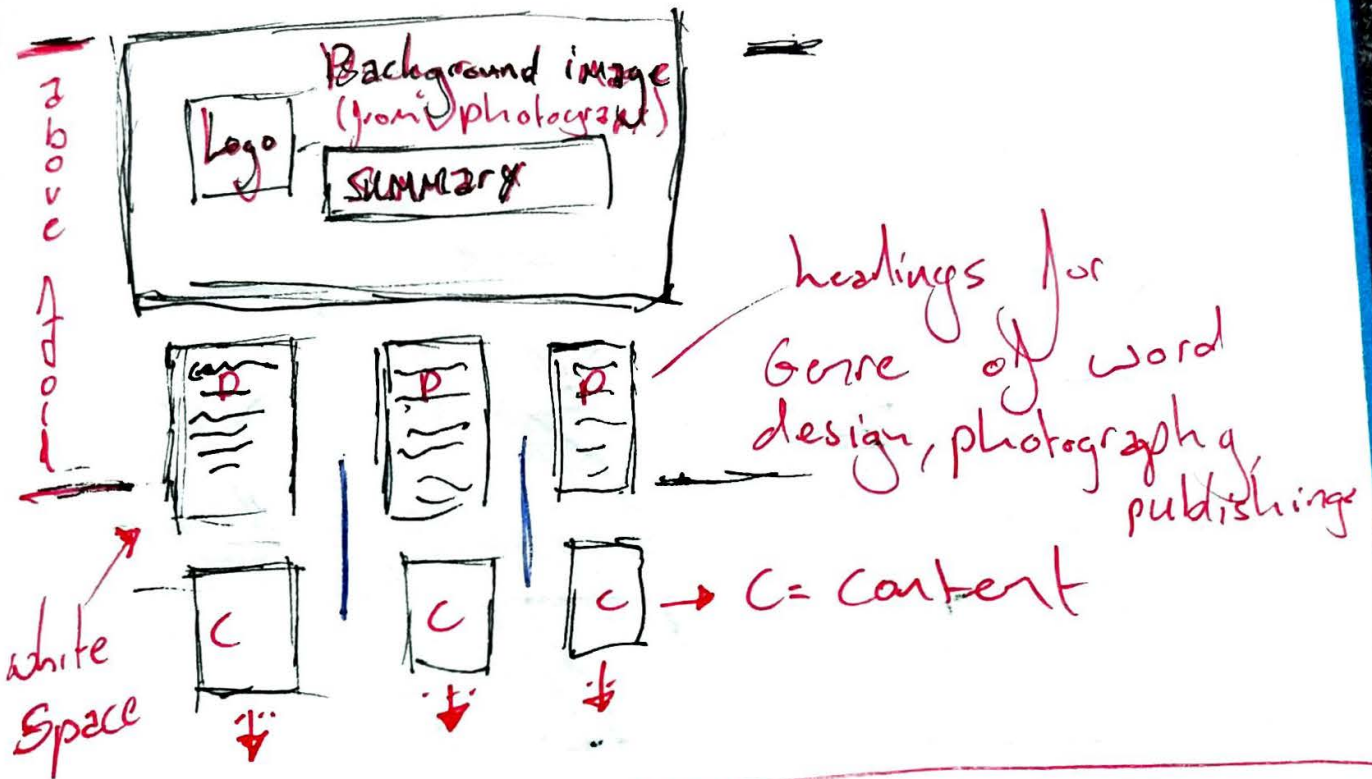 above fold
Background image
(from photograph)
Logo
summary
headings for
Genre of word
design, photography,
publishing
P
P
P
white
Space
C
C
C
C = Content